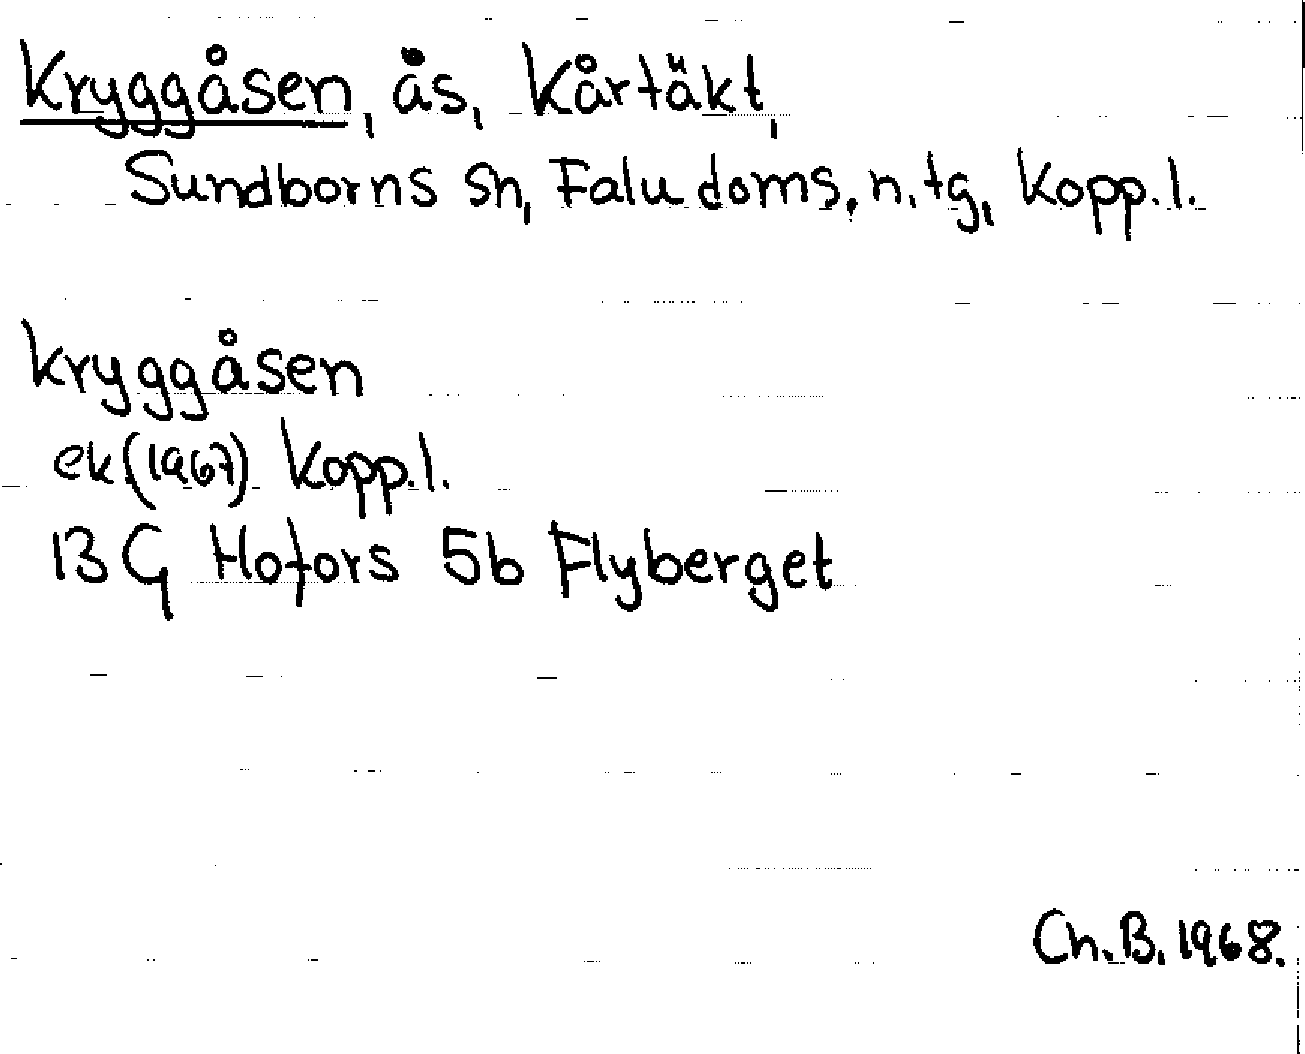 Kryggåsen, ås, Kårtäkt,
Sundborns sn, Falu doms. n. tg, Kopp. l.
Kryggåsen
ek (1967) Kopp. l.
13 G Hofors 5b Flyberget
Ch. B. 1968.